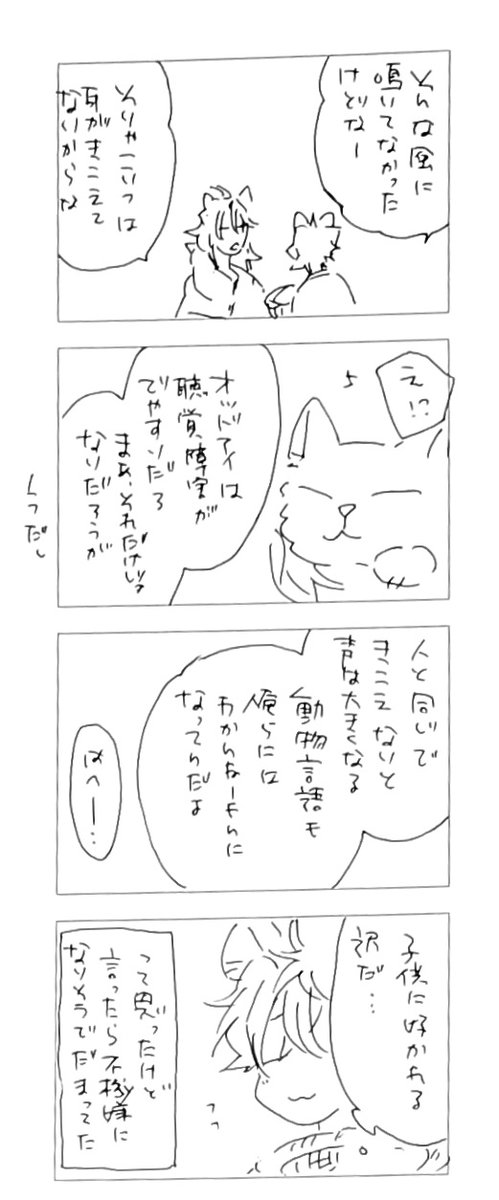 そんな風に
鳴いてなかった
けどなー
そりゃこいつは
耳がきこえて
ないからな
え!?
オッドアイは
聴覚障害が
でやすいだろ
まぁ、それだけじゃ
ないだろうが
人と同じで
きこえないと
声は大きくなる
動物言語も
俺らには
わかんねーよんに
なってんだよ
はへー…
子供に好かれる
訳だ…
って思ったけど
言ったら不機嫌に
なりそうでだまってた